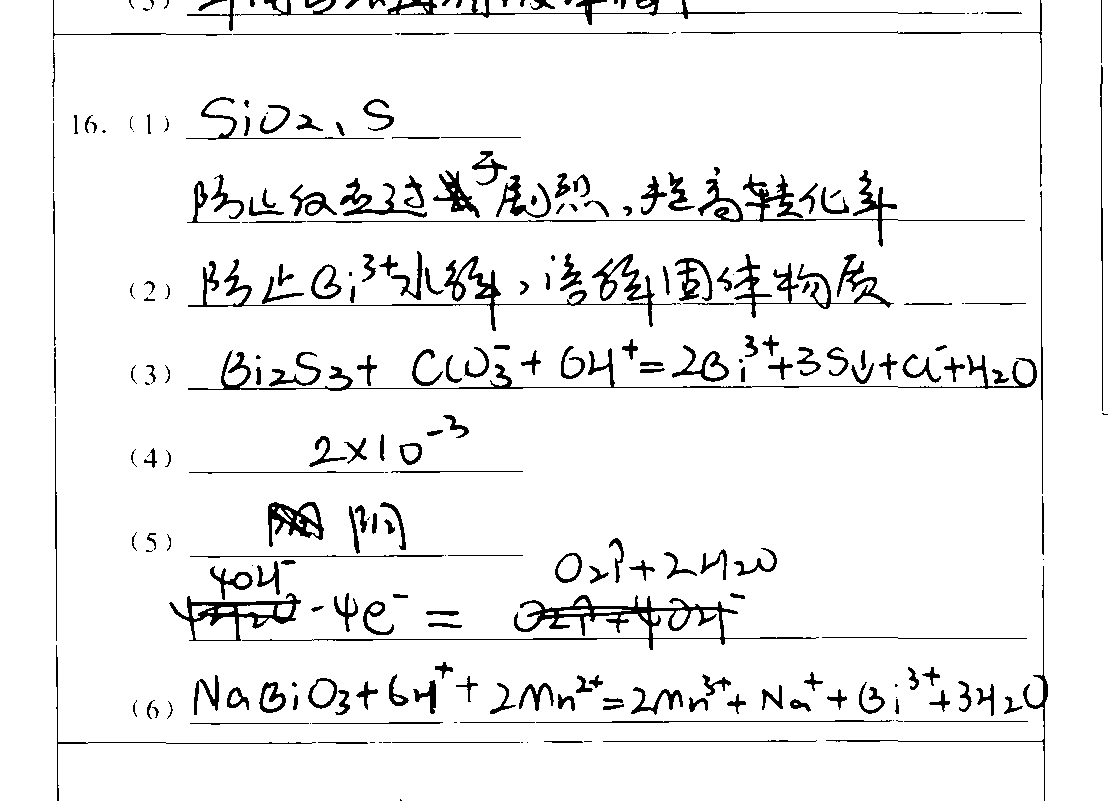 16. (1) SiO2、S
防止反应过于剧烈,提高转化率
(2) 防止Bi³⁺水解,溶解固体物质
(3) Bi2S3+ ClO3⁻+ 6H⁺=2Bi³⁺+3S↓+Cl⁻+H2O
(4) 2×10⁻³
(5) 阴
4OH⁻ - 4e⁻ = O2↑+2H2O
(6) NaBiO3+6H⁺+2Mn²⁺=2Mn³⁺+Na⁺+Bi³⁺+3H2O